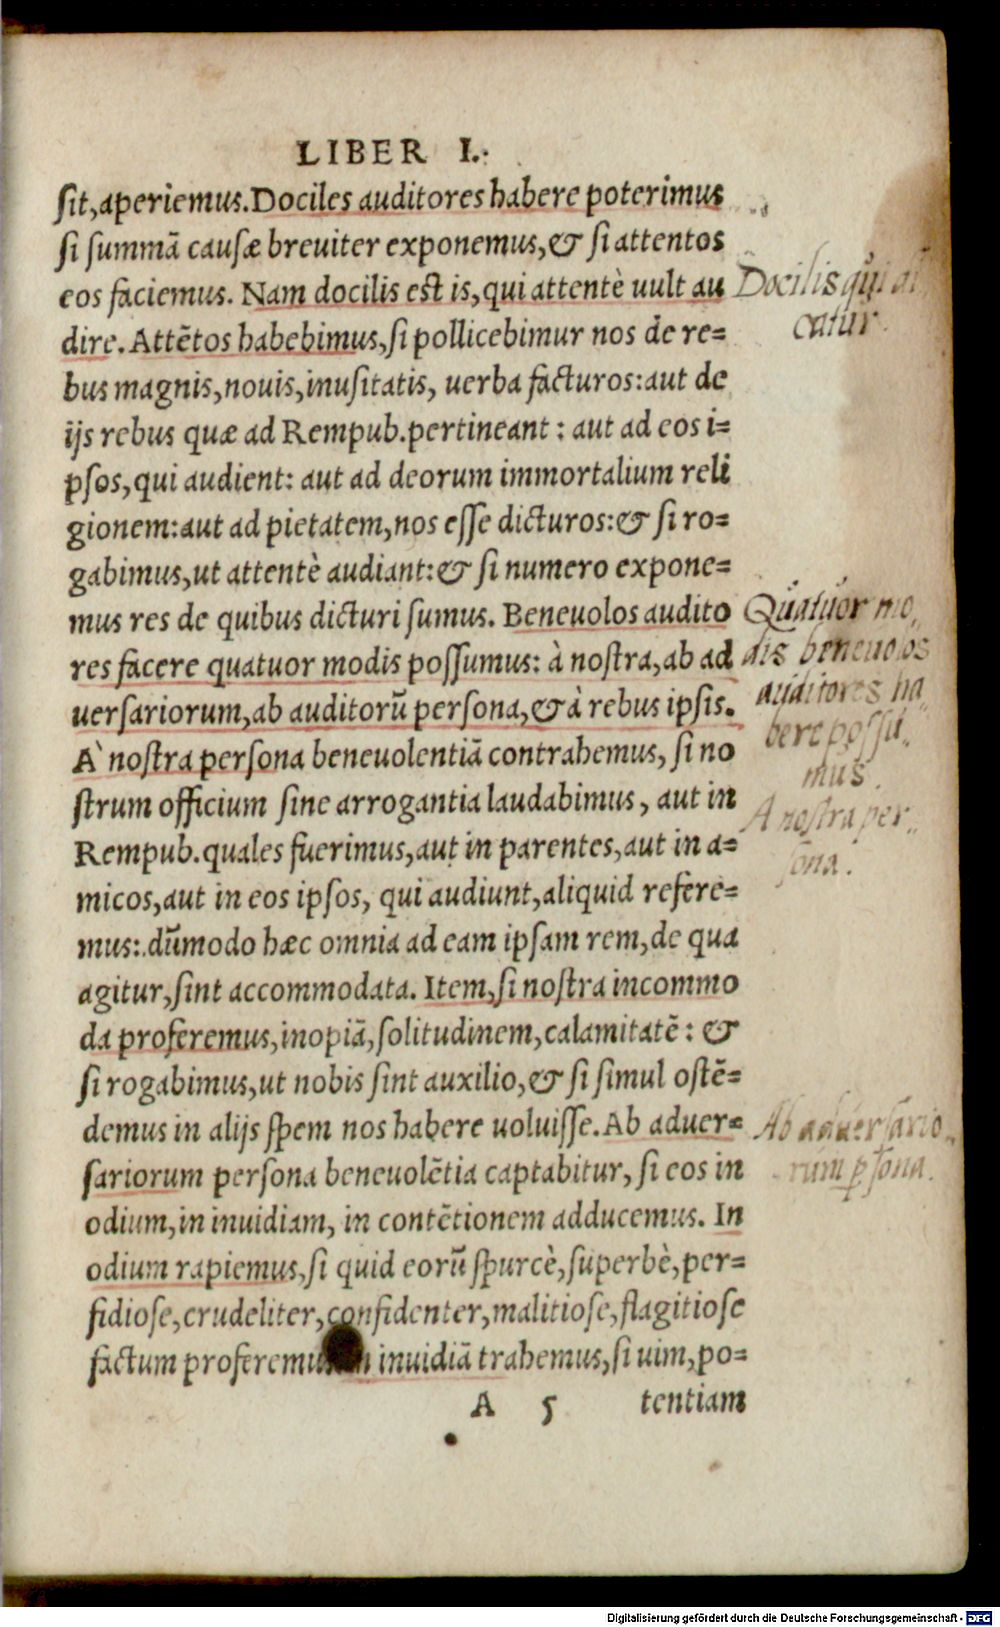 LIBER I.
sit, aperiemus. Dociles auditores habere poterimus
si summā causæ breuiter exponemus, & si attentos
eos faciemus. Nam docilis est is, qui attentè uult au
dire. Attētos habebimus, si pollicebimur nos de re=
bus magnis, nouis, inusitatis, uerba facturos: aut de
ijs rebus quæ ad Rempub. pertineant: aut ad eos i=
psos, qui audient: aut ad deorum immortalium reli
gionem: aut ad pietatem, nos esse dicturos: & si ro=
gabimus, ut attentè audiant: & si numero expone=
mus res de quibus dicturi sumus. Beneuolos audito
res facere quatuor modis possumus: à nostra, ab ad
uersariorum, ab auditorū persona, & à rebus ipsis.
À nostra persona beneuolentiā contrahemus, si no
strum officium sine arrogantia laudabimus, aut in
Rempub. quales fuerimus, aut in parentes, aut in a=
micos, aut in eos ipsos, qui audiunt, aliquid refere=
mus: dūmodo hæc omnia ad eam ipsam rem, de qua
agitur, sint accommodata. Item, si nostra incommo
da proferemus, inopiā, solitudinem, calamitatē: &
si rogabimus, ut nobis sint auxilio, & si simul ostē=
demus in alijs spem nos habere uoluisse. Ab aduer=
sariorum persona beneuolētia captabitur, si eos in
odium, in inuidiam, in contētionem adducemus. In
odium rapiemus, si quid eorū spurcè, superbè, per=
fidiose, crudeliter, confidenter, malitiose, flagitiose
factum proferemu inuidiā trahemus, si uim, po=
A 5 tentiam
Docilis qui
catur.
Quatuor mo
dis beneuolos
auditores ha
bere possu
mus.
A nostra per
sona.
Ab aduersario
rum psona.